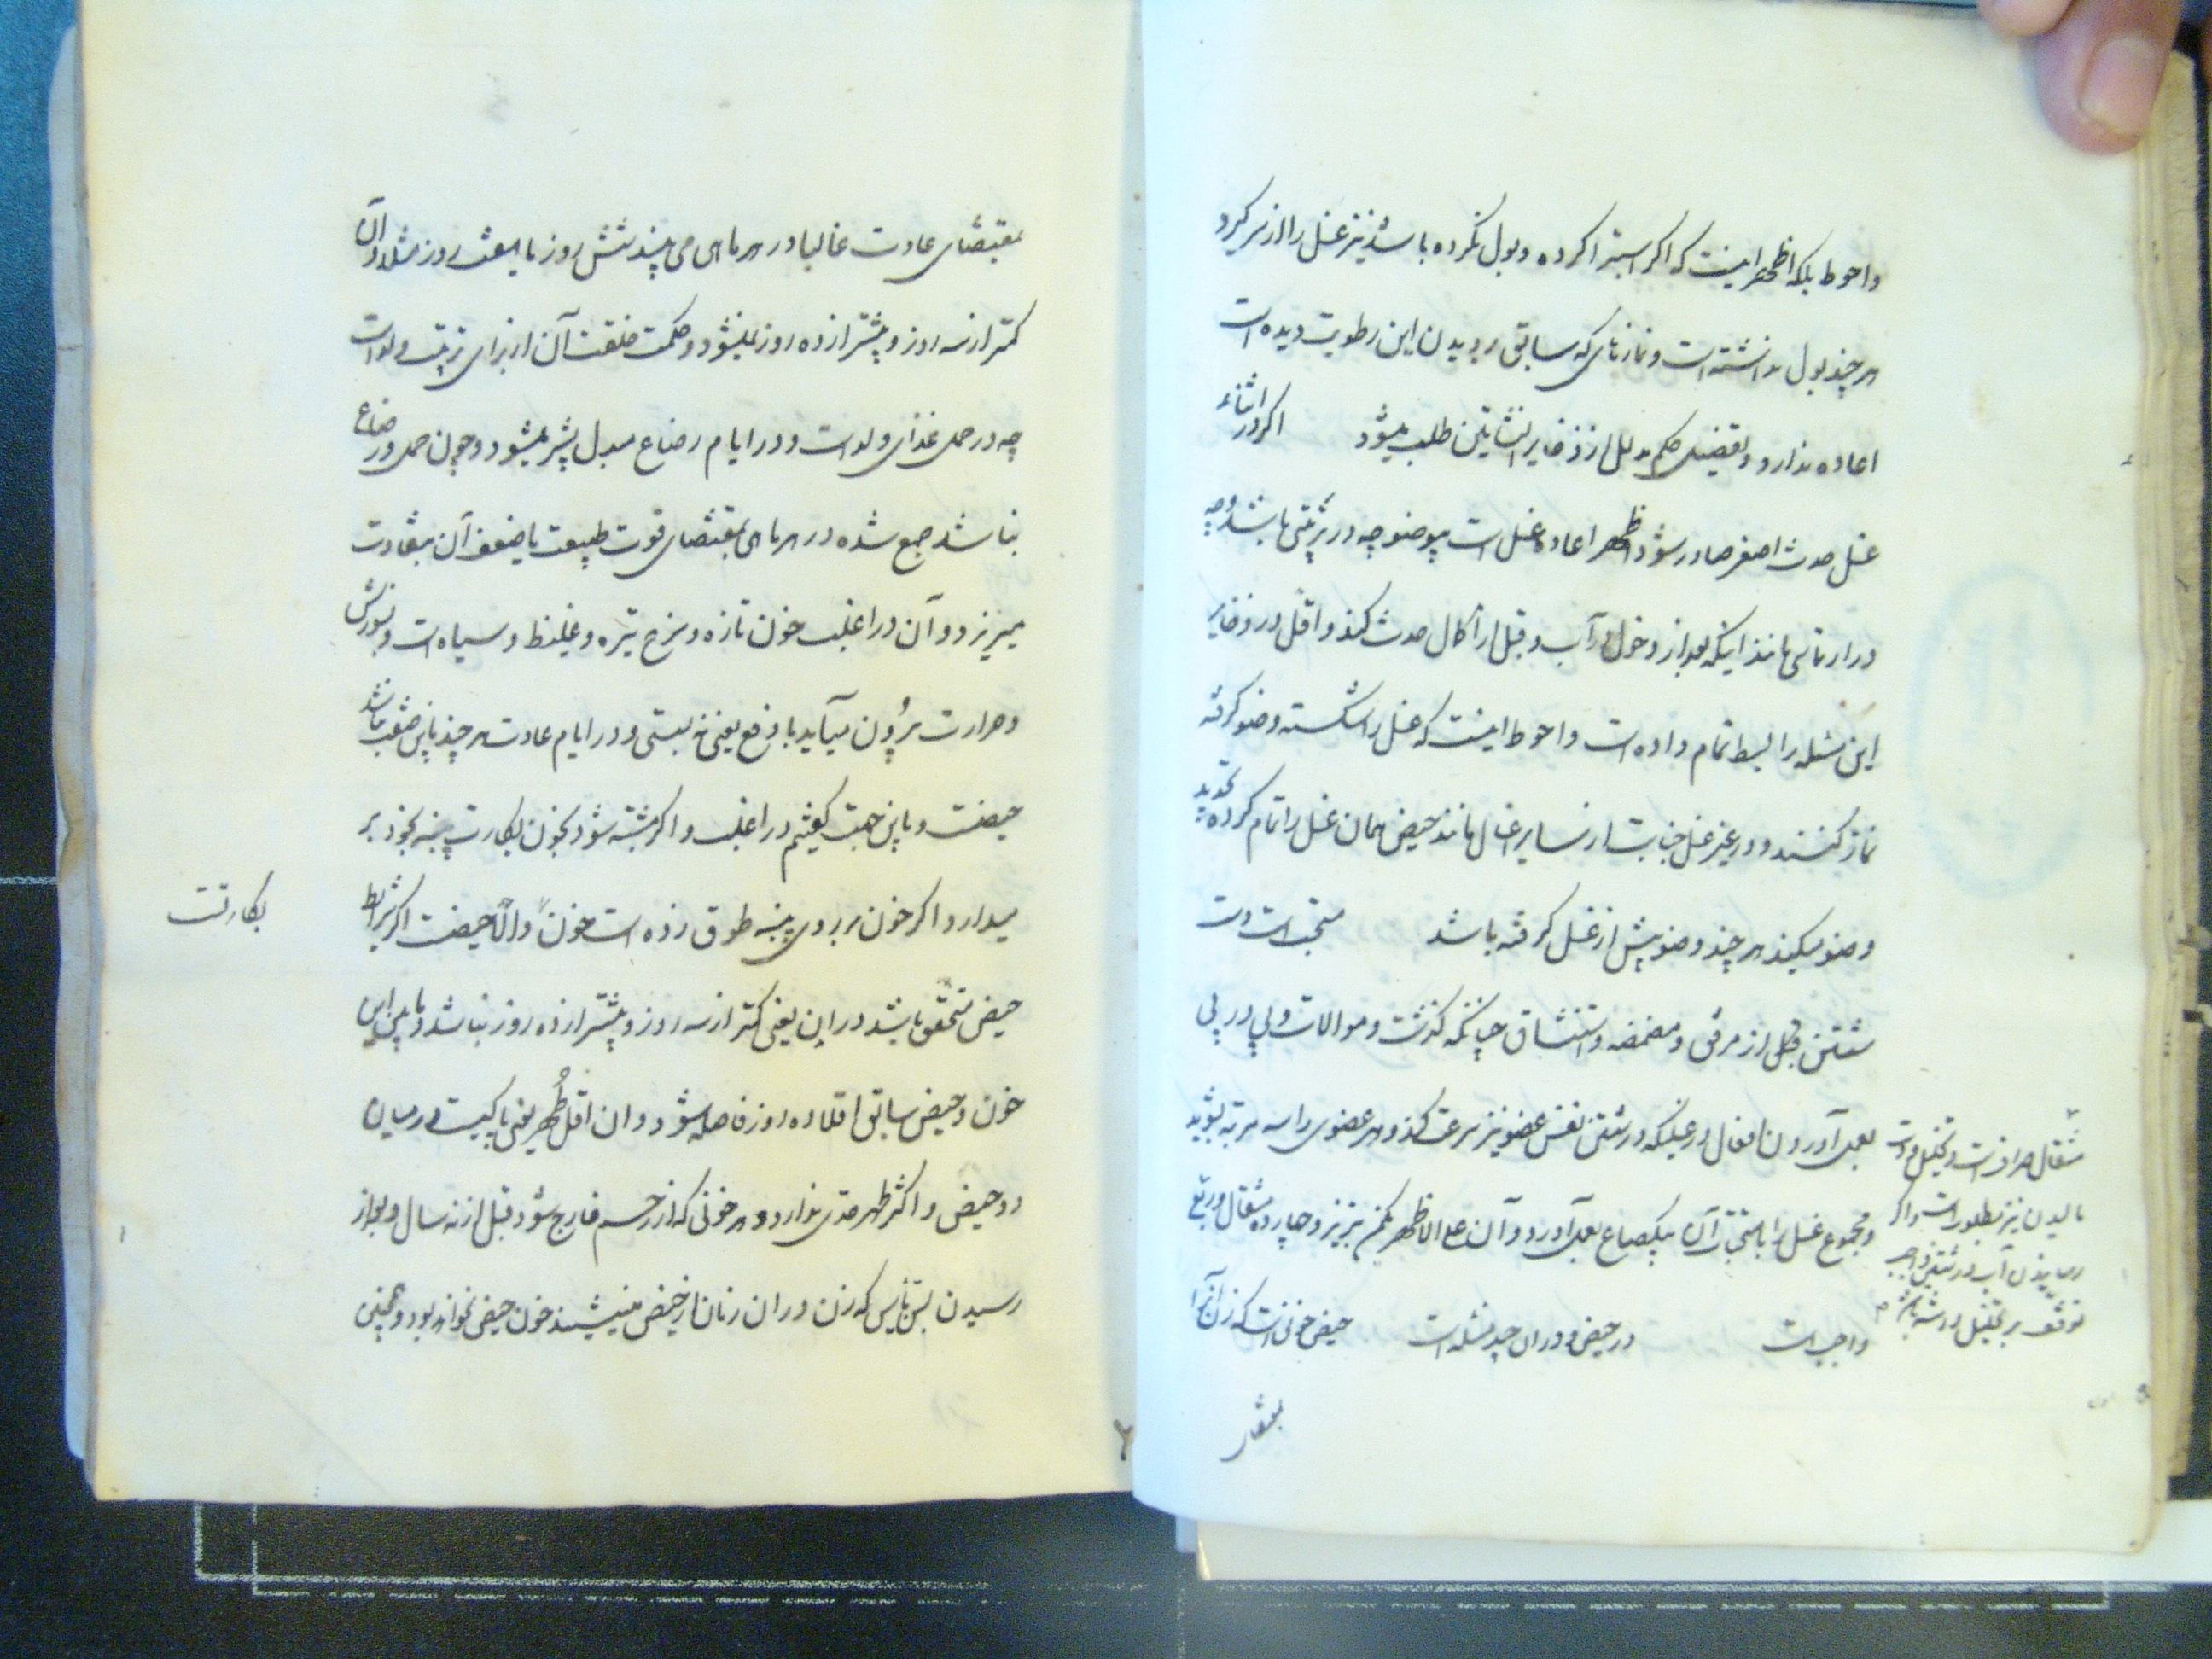 واحوط بلکه اظهر اینست که اکر استبرا کرده وبول نکرده باشد نیز غسل را از سر کیرد
هر چند بول نداشته است ونمازهای که سابق بر دیدن این رطوبت دیده است
اعاده ندارد وتفصیل حکم بدلل از ذخایر النشاتین طلب میشود اکر در اثناء
غسل حدث اصغر صادر شود اظهر اعادهٔ غسل است بیوضو چه در ترتیبی باشد وچه
در ارتماسی مانند اینکه بعد از دخول در آب وقبل از اکمال حدث کند واقل در ذخایر
این مسئله را بسط تمام داده است واحوط اینست که غسل را شکسته وضو کرفته
نماز کنند ودر غیر غسل جنابت از سایر اغسال مانند حیض همان غسل را تمام کرده
وضو میکند هر چند وضو پیش از غسل کرفته باشد مستحب است دست
شستن قبل از مرفق ومضمضه واستنشاق چنانکه کذشت وموالات وپی در پی
بعمل آوردن افعال در غسل که در شستن نفس عضو نیز سرعت کند وهر عضوی را سه مرتبه بشوید
ومجموع غسل را با مستحبات آن بیکصاع بعمل آورد وآن علی الاظهر یکمن تبریز وچهارده مثقال وربع
واجب است در حیض ودر ان چند مسئله است حیض خونی است که زن آنرا
بمقتضای
مثقال صراف است وتخلیل
مالیدن نیز مطلوب است واکر
رسانیدن آب در شستن واجب
توقف بر تخلیل داشته باشد
بمقتضای عادت غالبا در هر ماهی می بیند شش روز یا هفت روز
کمتر از سه روز وبیشتر از ده روز نمیشود وحکمت خلقت آن از برای تربیت ولد است
چه در حمل غذای ولد است ودر ایام رضاع مبدل بشیر میشود وچون حمل ورضاع
نباشد جمع شده در هر ماهی بمقتضای قوت طبیعت یا ضعف آن بتفاوت
میریزد وآن در اغلب خون تازه وسرخ تیره وغلیظ وسیاه است وبسوزش
وحرارت بیرون میآید با دفع یعنی نه بسستی ودر ایام عادت هر چند باین صفت نباشد
حیضست وباین جهت کفتیم در اغلب واکر مشتبه شود بخون بکارت پنبه بخود بر
میدارد اکر خون بر روی پنبه طوق زده است خون والّا حیضست اکر شرایط
بکارتست
حیض متحقق باشد در این یعنی کمتر از سه روز وبیشتر از ده روز نباشد ومابین این
خون وحیض سابق اقلا ده روز فاصله شود وان اقل طُهر یعنی پاکیست در میان
دو حیض واکثر طهر حدی ندارد وهر خونی که از رحم خارج شود قبل از نه سال وبعد از
رسیدن بسن یاس که زن در ان زمان از حیض مینشیند خون حیض نخواهد بود وهمچنین